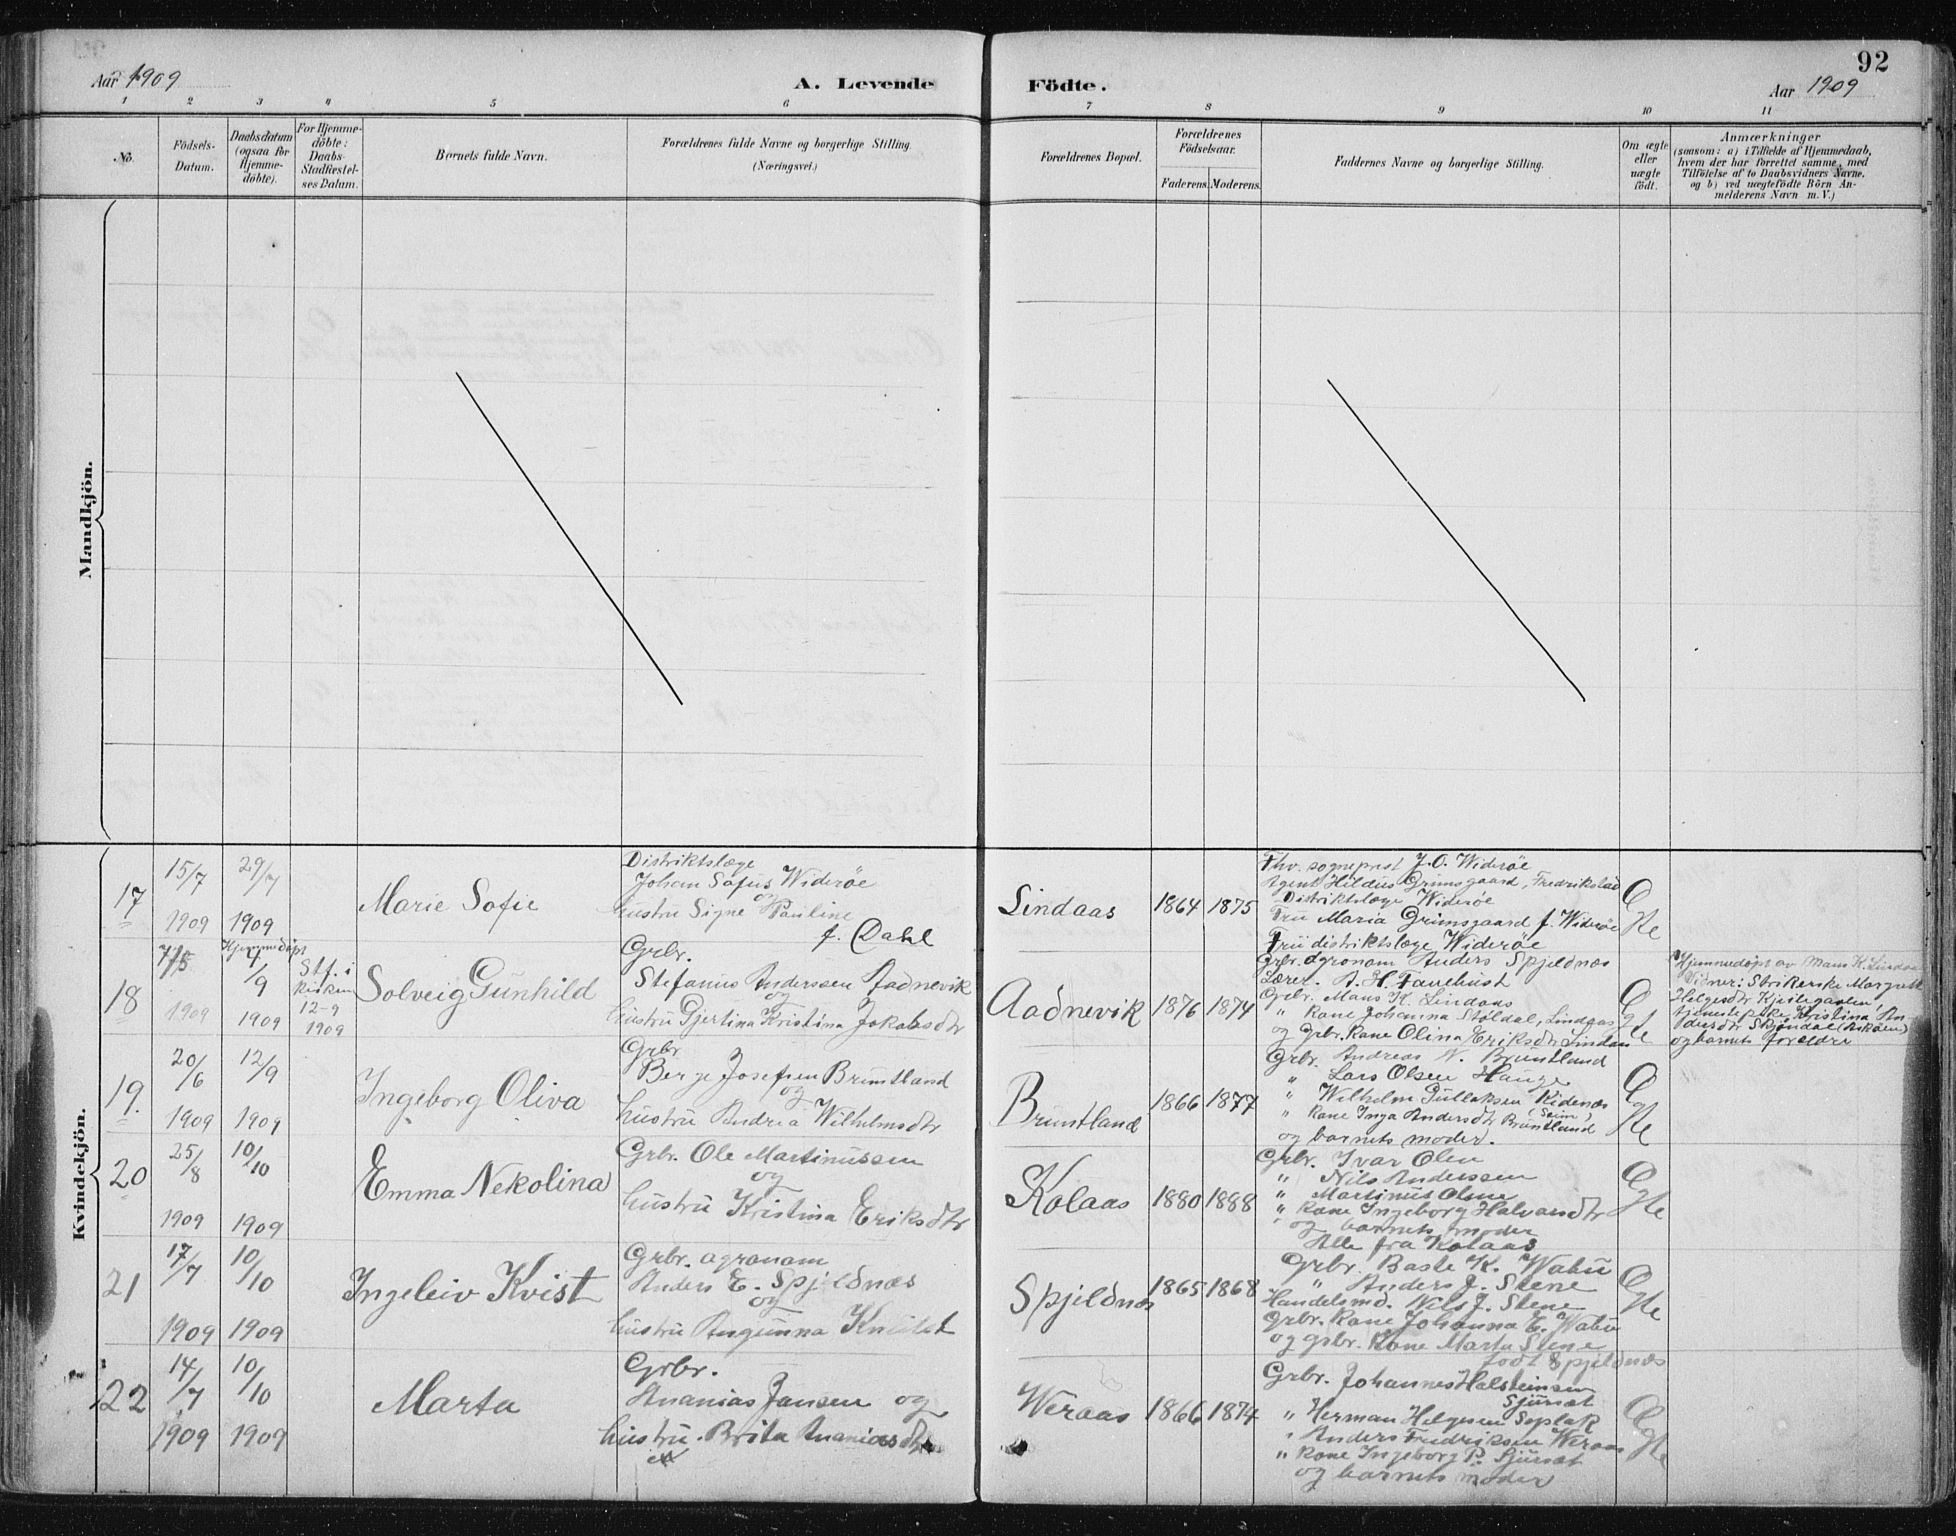 92
Aar 1909
A. Levende Födte.
Aar 1909
1 2 3 4 5 6 7 8 9 10 11
No.
Födsels-
Datum.
Daabsdatum
(ogsaa for
Hjemme-
döbte).
For Hjemme-
döbte:
Daabs-
Stadfæstel-
ses Datum.
Barnets fulde Navn.
Forældrenes fulde Navne og borgerlige Stilling.
(Næringsvei.)
Forældrenes Bopæl.
Forældrenes
Födselsaar.
Faderens. Moderens.
Faddernes Navne og borgerlige Stilling.
Om ægte
eller
uægte
födt.
Anmærkninger
(saasom: a) i Tilfælde af Hjemmedaab,
hvem der har forrettet samme, med
Tilföielse af to Daabsvidners Navne,
og b) ved uægtefödte Börn An-
melderens Navn m. V.)
Mandkjön.
Kvindekjön.
17
15/7
1909
29/7
1909
Marie Sofie
Distriktslæge
Johan Sofus Wideröe
og
hustru Signe Pauline
f. Dahl
Lindaas
1864 1875
Fhv. sogneprest J. O. Wideröe
Agent Hildus Grimsgaard, Fredrikstad
Distriktslæge Wideröe
Fru Maria Grimsgaard f. Wideröe
Fru distriktslæge Wideröe
Ægte
18
7/5
1909
Hjemmedöpt
4/9
1909
Stf. i
kirken
12-9
1909
Solveig Gunhild
Grbr.
Stefanus Anderssen Aadnevik
og
hustru Gjertina Kristina Jakobsdtr
Aadnevik
1876 1874
Grbr. agronom Anders Spjeldnæs
Lærer. A. H. Fanehust
Grbr. Mans K. Lindaas
" kone Johanna Stöldal, Lindaas
og grbr. kone Olina Eriksdtr Lindaas
Ægte
Hjemmedöpt av Mans K. Lindaas
Vidner: Strikerske Margrethe
Helgesdtr Kjeilegavlen
tjenestepike Kristina An-
dersdtr
og barnets forældre
19.
20/6
1909
12/9
1909
Ingeborg Oliva
Grbr
Berge Josefsen Bruntland
og
hustru Andrea Wilhelmsdtr
Bruntland
1866 1877
Grbr. Andreas N. Bruntland
" Lars Olsen Hauge
" Wilhelm Gullaksen Kidenæs
(Seim)
" kone Inga Andersdtr Bruntland
og barnets moder.
Ægte
20
25/8
1909
10/10
1909
Emma Nekolina
Grbr. Ole Martinussen
og
hustru Kristina Eriksdtr
Kolaas
1880 1888
Grbr. Ivar Olen
" Nils Anderssen
" Martinus Olsne
" kone Ingeborg Halvarsdtr
og barnets moder
Alle fra Kolaas
Ægte
21
17/7
1909
10/10
1909
Ingeleiv Kvist
Grbr. agronom
Anders E. Spjeldnæs
og
hustru Angunna
Spjeldnæs
1865 1868
Grbr. Baste K. Watu
" Anders J. Stene
Handelsmd. Nils J. Stene
Grbr. kone Johanna E. Watu
og grbr. kone Marta Stene
födt Spjeldnæs
Ægte
22
14/7
1909
10/10
1909
Marta
Grbr.
Ananias Jansen og
hustru Brita Ananiasdtr
Weraas
1866 1874
Grbr. Johannes Halsteinsen
Sjursæt
" Herman Helgesen Seplak
" Anders Fredriksen Weraas
" kone Ingeborg P. Sjursæt
og barnets moder
Ægte